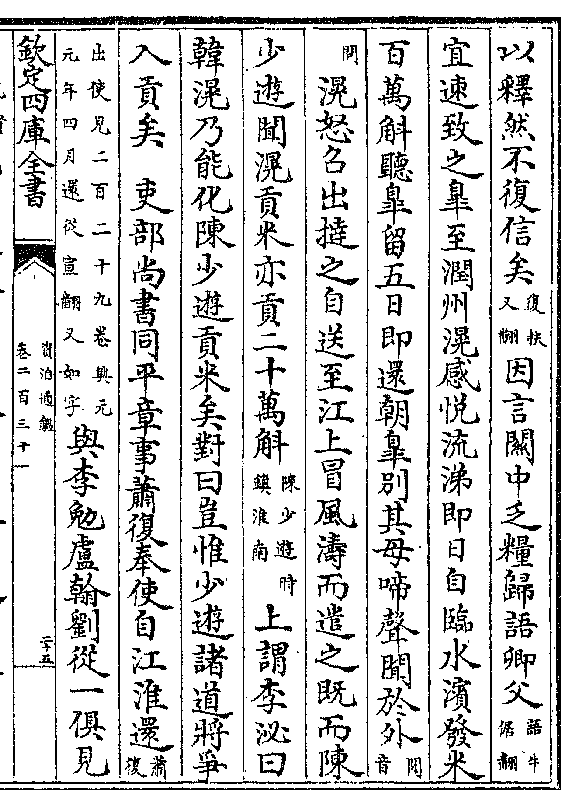 以釋然不復信矣復扶又翻因言關中乏糧歸語卿父語牛倨翻
宜速致之臯至潤州滉感悅流涕即日自臨水濱發米
百萬斛聽臯留五日即還朝臯別其母啼聲聞於外聞音
問滉怒召出撻之自送至江上冒風濤而遣之既而陳
少遊聞滉貢米亦貢二十萬斛陳少遊時鎮淮南上謂李泌曰
韓滉乃能化陳少遊貢米矣對曰豈惟少遊諸道將爭
入貢矣 吏部尚書同平章事蕭復奉使自江淮還蕭復
出使見二百二十九卷興元元年四月還從宣翻又如字與李勉盧翰劉從一俱見
欽定四庫全書
資治通鑑
卷二百三十一
二十五